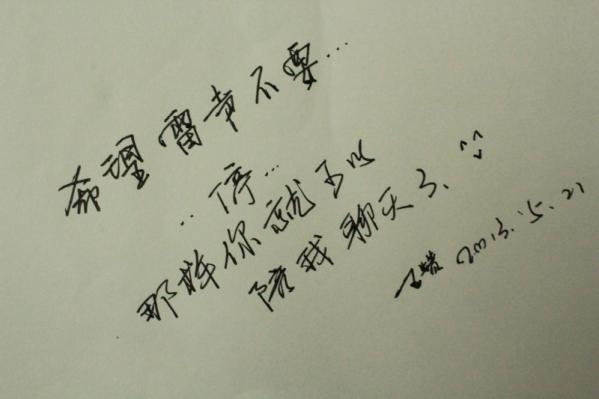 希望雷声不要...
..停...
那样你就可以
陪我聊天了. ^^
2013.5.21